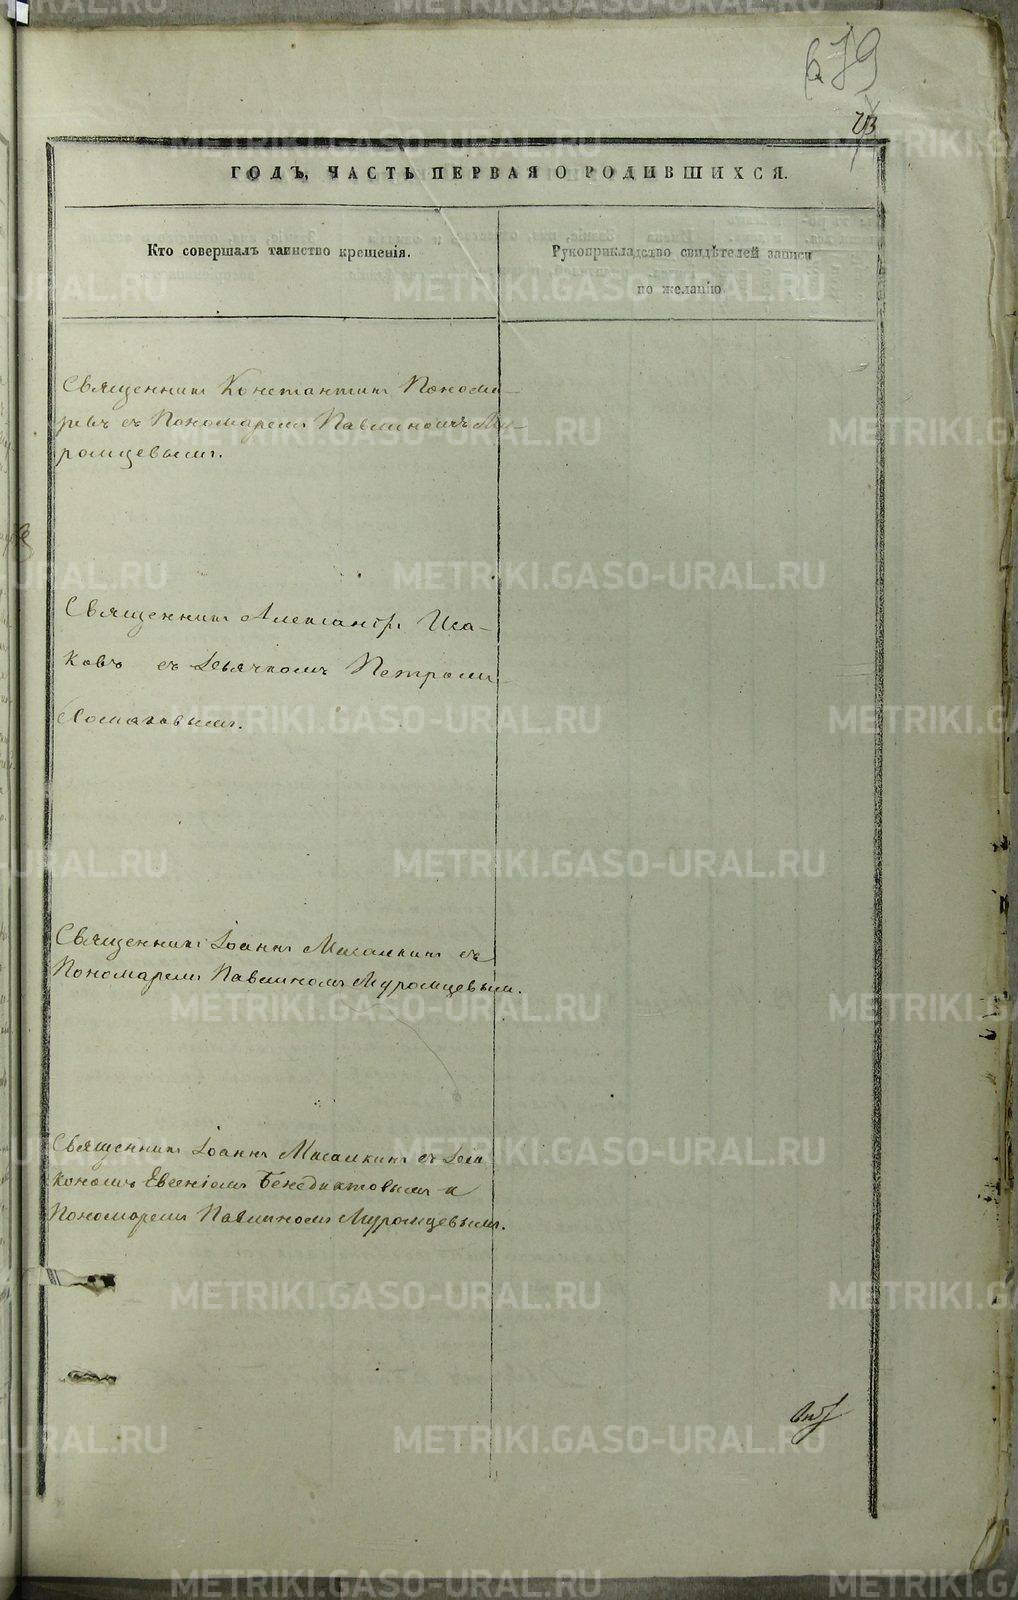 679
73
ГОДЪ, ЧАСТЬ ПЕРВАЯ О РОДИВШИХСЯ.
Кто совершалъ таинство крещенія.
Рукоприкладство свидѣтелей записи
по желанію.
Священникъ Константинъ Понома-
ревъ съ Пономаремъ Павлиномъ Му-
ромцевымъ.
Священникъ Александръ Иса-
ковъ съ Дьячкомъ Петромъ
Священникъ Іоаннъ Мисалкинъ съ
Пономаремъ Павлиномъ Муромцевым.
Священникъ Іоаннъ Мисалкинъ съ Діа
кономъ Евгеніемъ Бенедиктовымъ и
Пономаремъ Павлиномъ Муромцевымъ.
METRIKI.GASO-URAL.RU